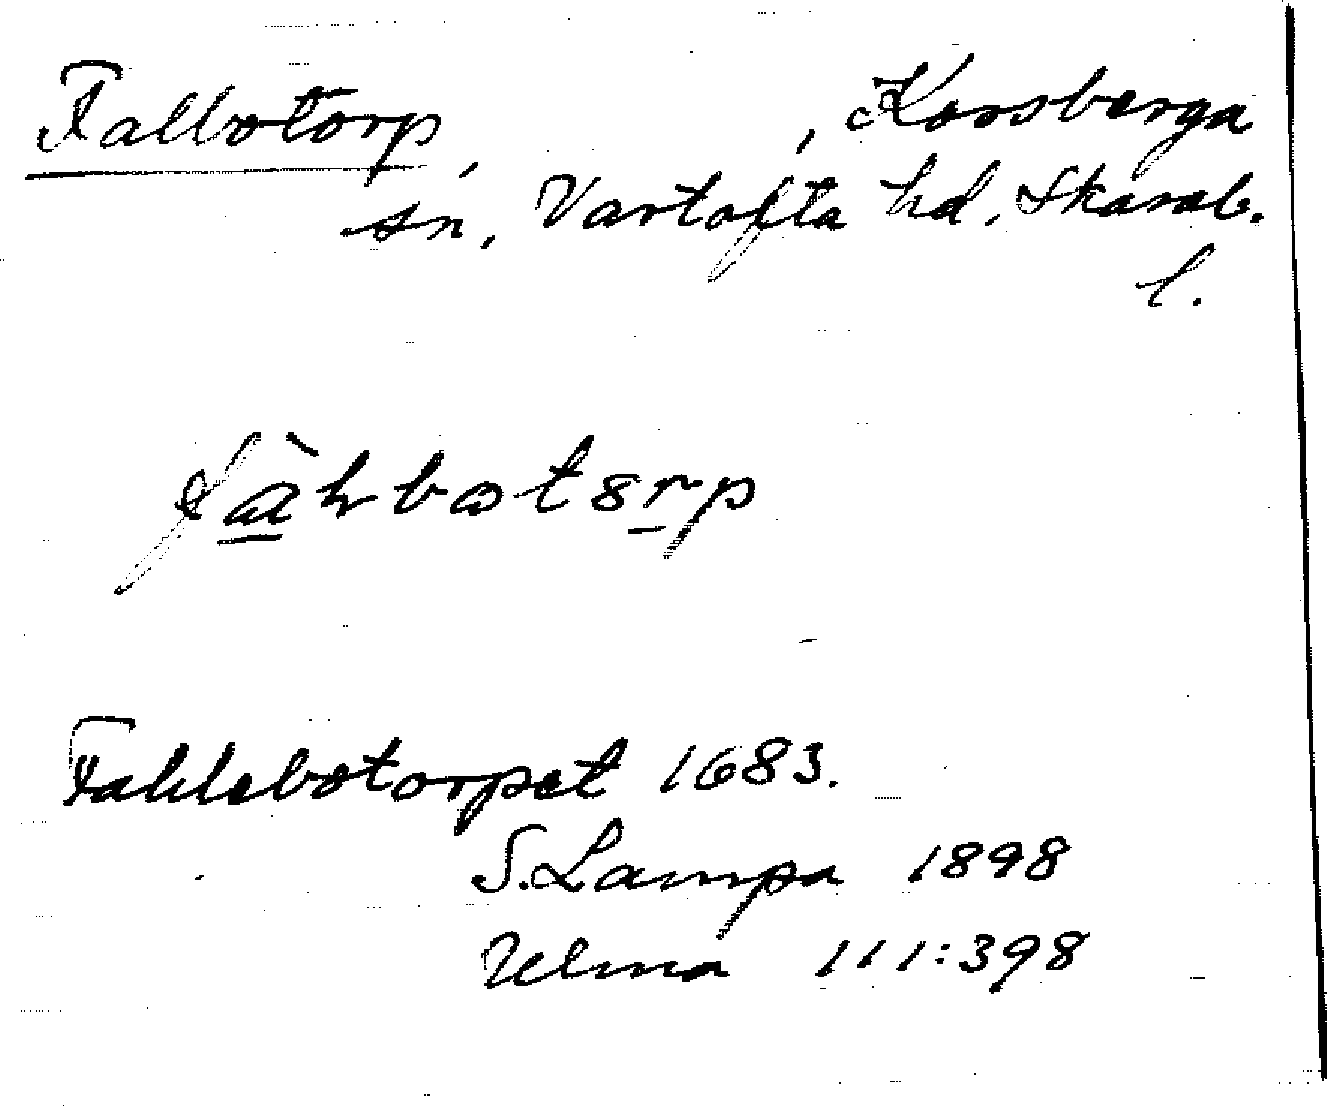 Falbotorp, , Korsberga
sn, Vartofta hd, Skarab.
l.
Fahlebotorpet 1683.
S. Lampa 1898
Ulma 111:398